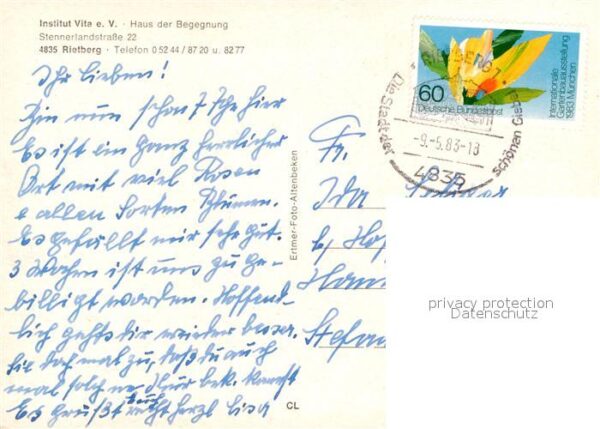 Institut Vita e. V. · Haus der Begegnung
Stennerlandstraße 22
4835 Rietberg · Telefon 0 52 44 / 87 20 u. 82 77
Ihr Lieben!
Bin nun schon 7 Tge hier
Es ist ein ganz herrlicher
Ort mit viel Rosen
e allen Sorten Blumen.
Es gefällt mir sehr gut.
3 Wochen ist uns zu ge-
billigt worden. Hoffend-
lich gehts dir wieder besser.
Sie doch mal zu, daß du auch
mal solch ne Kur bek. kannst
Es grüßt euch recht herzl Lisa
Ertmer-Foto-Altenbeken
CL
Fr.
Ida
b/ Hof
Stefa
60
Deutsche Bundespost
Internationale
Gartenbauausstellung
1983 München
Die Stadt der schönen Giebel
-9.-5.83-18
4835
privacy protection
Datenschutz